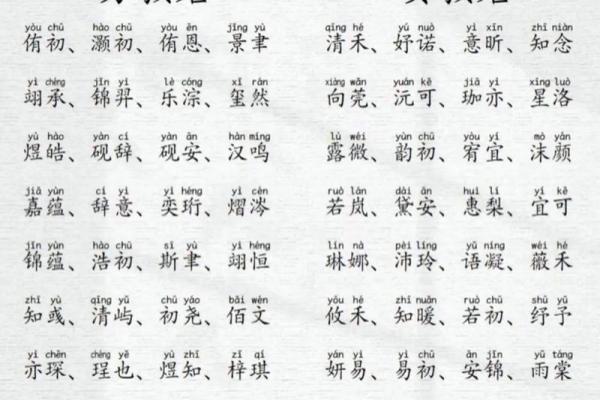 yòu chū hào chū yòu ēn jǐng yù
侑初、灏初、侑恩、景聿
yì chéng jǐn yì lè cóng xǐ rán
翊承、锦羿、乐淙、玺然
yù hào yàn cí yàn ān hàn míng
煜皓、砚辞、砚安、汉鸣
jiā yùn cí yì yì héng yì cén
嘉蕴、辞意、奕珩、熠涔
jǐn yùn hào chū sī yù yì héng
锦蕴、浩初、斯聿、翊恒
zhī yù qīng yǔ chū yáo bǎi wén
知彧、清屿、初尧、佰文
yì chēn chéng yě yù zhī zǐ qí
亦琛、珵也、煜知、梓琪
qīng hé yú nuò yì xīn zhī niàn
清禾、妤诺、意昕、知念
xiàng wǎn yuán kě jiā yì xīng luò
向莞、沅可、珈亦、星洛
lù wēi yùn chū yòu yí mò yán
露微、韵初、宥宜、沫颜
ruò lán dài ān huì lí yí kě
若岚、黛安、惠梨、宜可
lín nà pèi líng yǔ níng wēi hé
琳娜、沛玲、语凝、薇禾
yōu hé zhī nuǎn ruò chū shū yǔ
攸禾、知暖、若初、纾予
yán yì yì chū ān jǐn yǔ táng
妍易、易初、安锦、雨棠